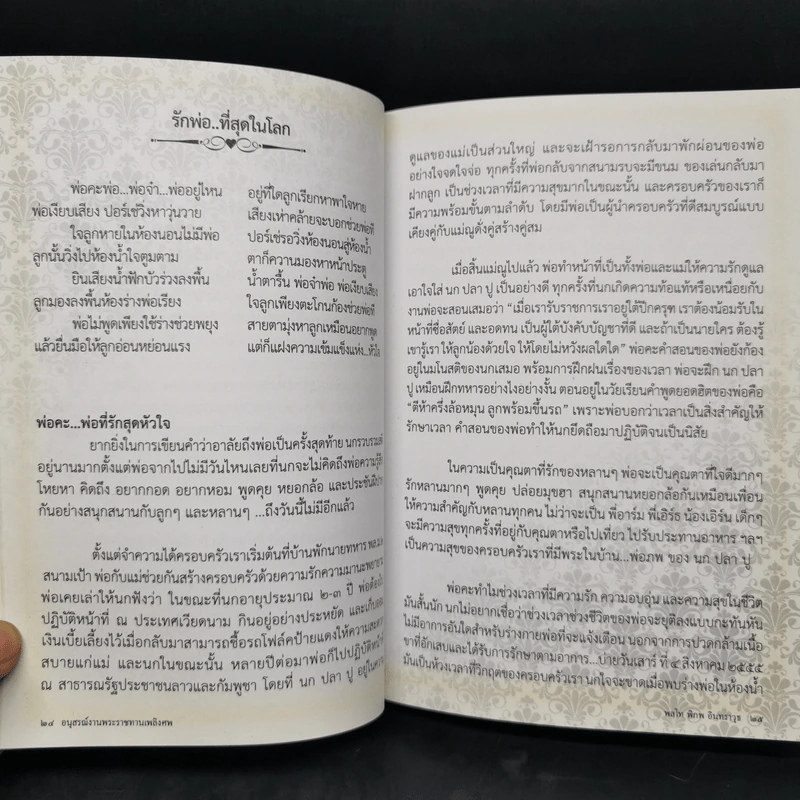 รักพ่อ..ที่สุดในโลก
พ่อคะพ่อ...พ่อจำ...พ่ออยู่ไหน
อยู่ที่ใดลูกเรียกหาพาใจหาย
พ่อเงียบเสียง ปอร์เช่วิ่งหาวุ่นวาย
เสียงเห่าคล้ายจะบอกช่วยพ่อที
ใจลูกหายในห้องนอนไม่มีพ่อ
ปอร์เช่รอวิ่งห้องนอนสู่ห้องน้ำ
ลูกนั้นวิ่งไปห้องน้ำใจตูมตาม
ตาก็ควานมองหาหน้าประตู
ยินเสียงน้ำฟักบัวร่วงลงพื้น
น้ำตารื้น พ่อจ๋าพ่อ พ่อเงียบเสียง
ลูกมองลงพื้นห้องร่างพ่อเรียง
ใจลูกเพียงตะโกนก้องช่วยพ่อที
พ่อไม่พูดเพียงใช้ร่างช่วยพยุง
สายตามุ่งหาลูกเหมือนอยากพูด
แล้วยื่นมือให้ลูกอ่อนหย่อนแรง
แต่ก็แฝงความเข้มแข็งแห่ง..หัวใจ
พ่อคะ...พ่อที่รักสุดหัวใจ
ยากยิ่งในการเขียนคำว่าอาลัยถึงพ่อเป็นครั้งสุดท้าย นกรวบรวม
อยู่นานมากตั้งแต่พ่อจากไปไม่มีวันไหนเลยที่นกจะไม่คิดถึงพ่อความรู้สึก
โหยหา คิดถึง อยากกอด อยากหอม พูดคุย หยอกล้อ และประชันฝีปาก
กันอย่างสนุกสนานกับลูกๆ และหลานๆ ...ถึงวันนี้ไม่มีอีกแล้ว
ตั้งแต่จำความได้ครอบครัวเราเริ่มต้นที่บ้านพักนายทหาร
สนามเป้า พ่อกับแม่ช่วยกันสร้างครอบครัวด้วยความรักความมานะพยายาม
พ่อเคยเล่าให้นกฟังว่า ในขณะที่นกอายุประมาณ ๒-๓ ปี พ่อต้องไป
ปฏิบัติหน้าที่ ณ ประเทศเวียดนาม กินอยู่อย่างประหยัด และเก็บออม
เงินเบี้ยเลี้ยงไว้เมื่อกลับมาสามารถซื้อรถโฟล์คป้ายแดงให้ความสะดวก
สบายแก่แม่ และนกในขณะนั้น หลายปีต่อมาพ่อก็ไปปฏิบัติหน้าที่
ณ สาธารณรัฐประชาชนลาวและกัมพูชา โดยที่ นก ปลา ปู อยู่ในความ
๒๔ อนุสรณ์งานพระราชทานเพลิงศพ
ดูแลของแม่เป็นส่วนใหญ่ และจะเฝ้ารอการกลับมาพักผ่อนของพ่อ
อย่างใจจดใจจ่อ ทุกครั้งที่พ่อกลับจากสนามรบจะมีขนม ของเล่นกลับมา
ฝากลูก เป็นช่วงเวลาที่มีความสุขมากในขณะนั้น และครอบครัวของเราก็
มีความพร้อมขึ้นตามลำดับ โดยมีพ่อเป็นผู้นำครอบครัวที่ดีสมบูรณ์แบบ
เคียงคู่กับแม่ณูดั่งคู่สร้างคู่สม
เมื่อสิ้นแม่ณูไปแล้ว พ่อทำหน้าที่เป็นทั้งพ่อและแม่ให้ความรักดูแล
เอาใจใส่ นก ปลา ปู เป็นอย่างดี ทุกครั้งที่นกเกิดความท้อแท้หรือเหนื่อยกับ
งานพ่อจะสอนเสมอว่า “เมื่อเรารับราชการเราอยู่ใต้ปีกครุฑ เราต้องน้อมรับใน
หน้าที่ซื่อสัตย์ และอดทน เป็นผู้ใต้บังคับบัญชาที่ดี และถ้าเป็นนายใคร ต้องรู้
เขารู้เรา ให้ลูกน้องด้วยใจ ให้โดยไม่หวังผลใดใด” พ่อคะคำสอนของพ่อยังก้อง
อยู่ในมโนสติของนกเสมอ พร้อมการฝึกฝนเรื่องของเวลา พ่อจะฝึก นก ปลา
ปู เหมือนฝึกทหารอย่างไงอย่างงั้น ตอนอยู่ในวัยเรียนคำพูดยอดฮิตของพ่อคือ
“ตีห้าครึ่งล้อหมุน ลูกพร้อมขึ้นรถ” เพราะพ่อบอกว่าเวลาเป็นสิ่งสำคัญให้
รักษาเวลา คำสอนของพ่อทำให้นกยึดถือมาปฏิบัติจนเป็นนิสัย
ในความเป็นคุณตาที่รักของหลานๆ พ่อจะเป็นคุณตาที่ใจดีมากๆ
รักหลานมากๆ พูดคุย ปล่อยมุขฮา สนุกสนานหยอกล้อกันเหมือนเพื่อน
ให้ความสำคัญกับหลานทุกคน ไม่ว่าจะเป็น พี่อาร์ม พี่เอิร์ธ น้องเอิร์น เด็กๆ
จะมีความสุขทุกครั้งที่อยู่กับคุณตาหรือไปเที่ยว ไปรับประทานอาหาร ฯลฯ
เป็นความสุขของครอบครัวเราที่มีพระในบ้าน...พ่อภพ ของ นก ปลา ปู
พ่อคะทำไมช่วงเวลาที่มีความรัก ความอบอุ่น และความสุขในชีวิต
มันสั้นนัก นกไม่อยากเชื่อว่าช่วงเวลาช่วงชีวิตของพ่อจะยุติลงแบบกะทันหัน
ไม่มีอาการอันใดสำหรับร่างกายพ่อที่จะแจ้งเตือน นอกจากการปวดกล้ามเนื้อ
ขาที่อักเสบและได้รับการรักษาตามอาการ...บ่ายวันเสาร์ ที่ ๔ สิงหาคม ๒๕๕๕
มันเป็นห้วงเวลาที่วิกฤตของครอบครัวเรา นกใจจะขาดเมื่อพบร่างพ่อในห้องน้ำ
พลโท พิภพ อินทราวุธ ๒๕